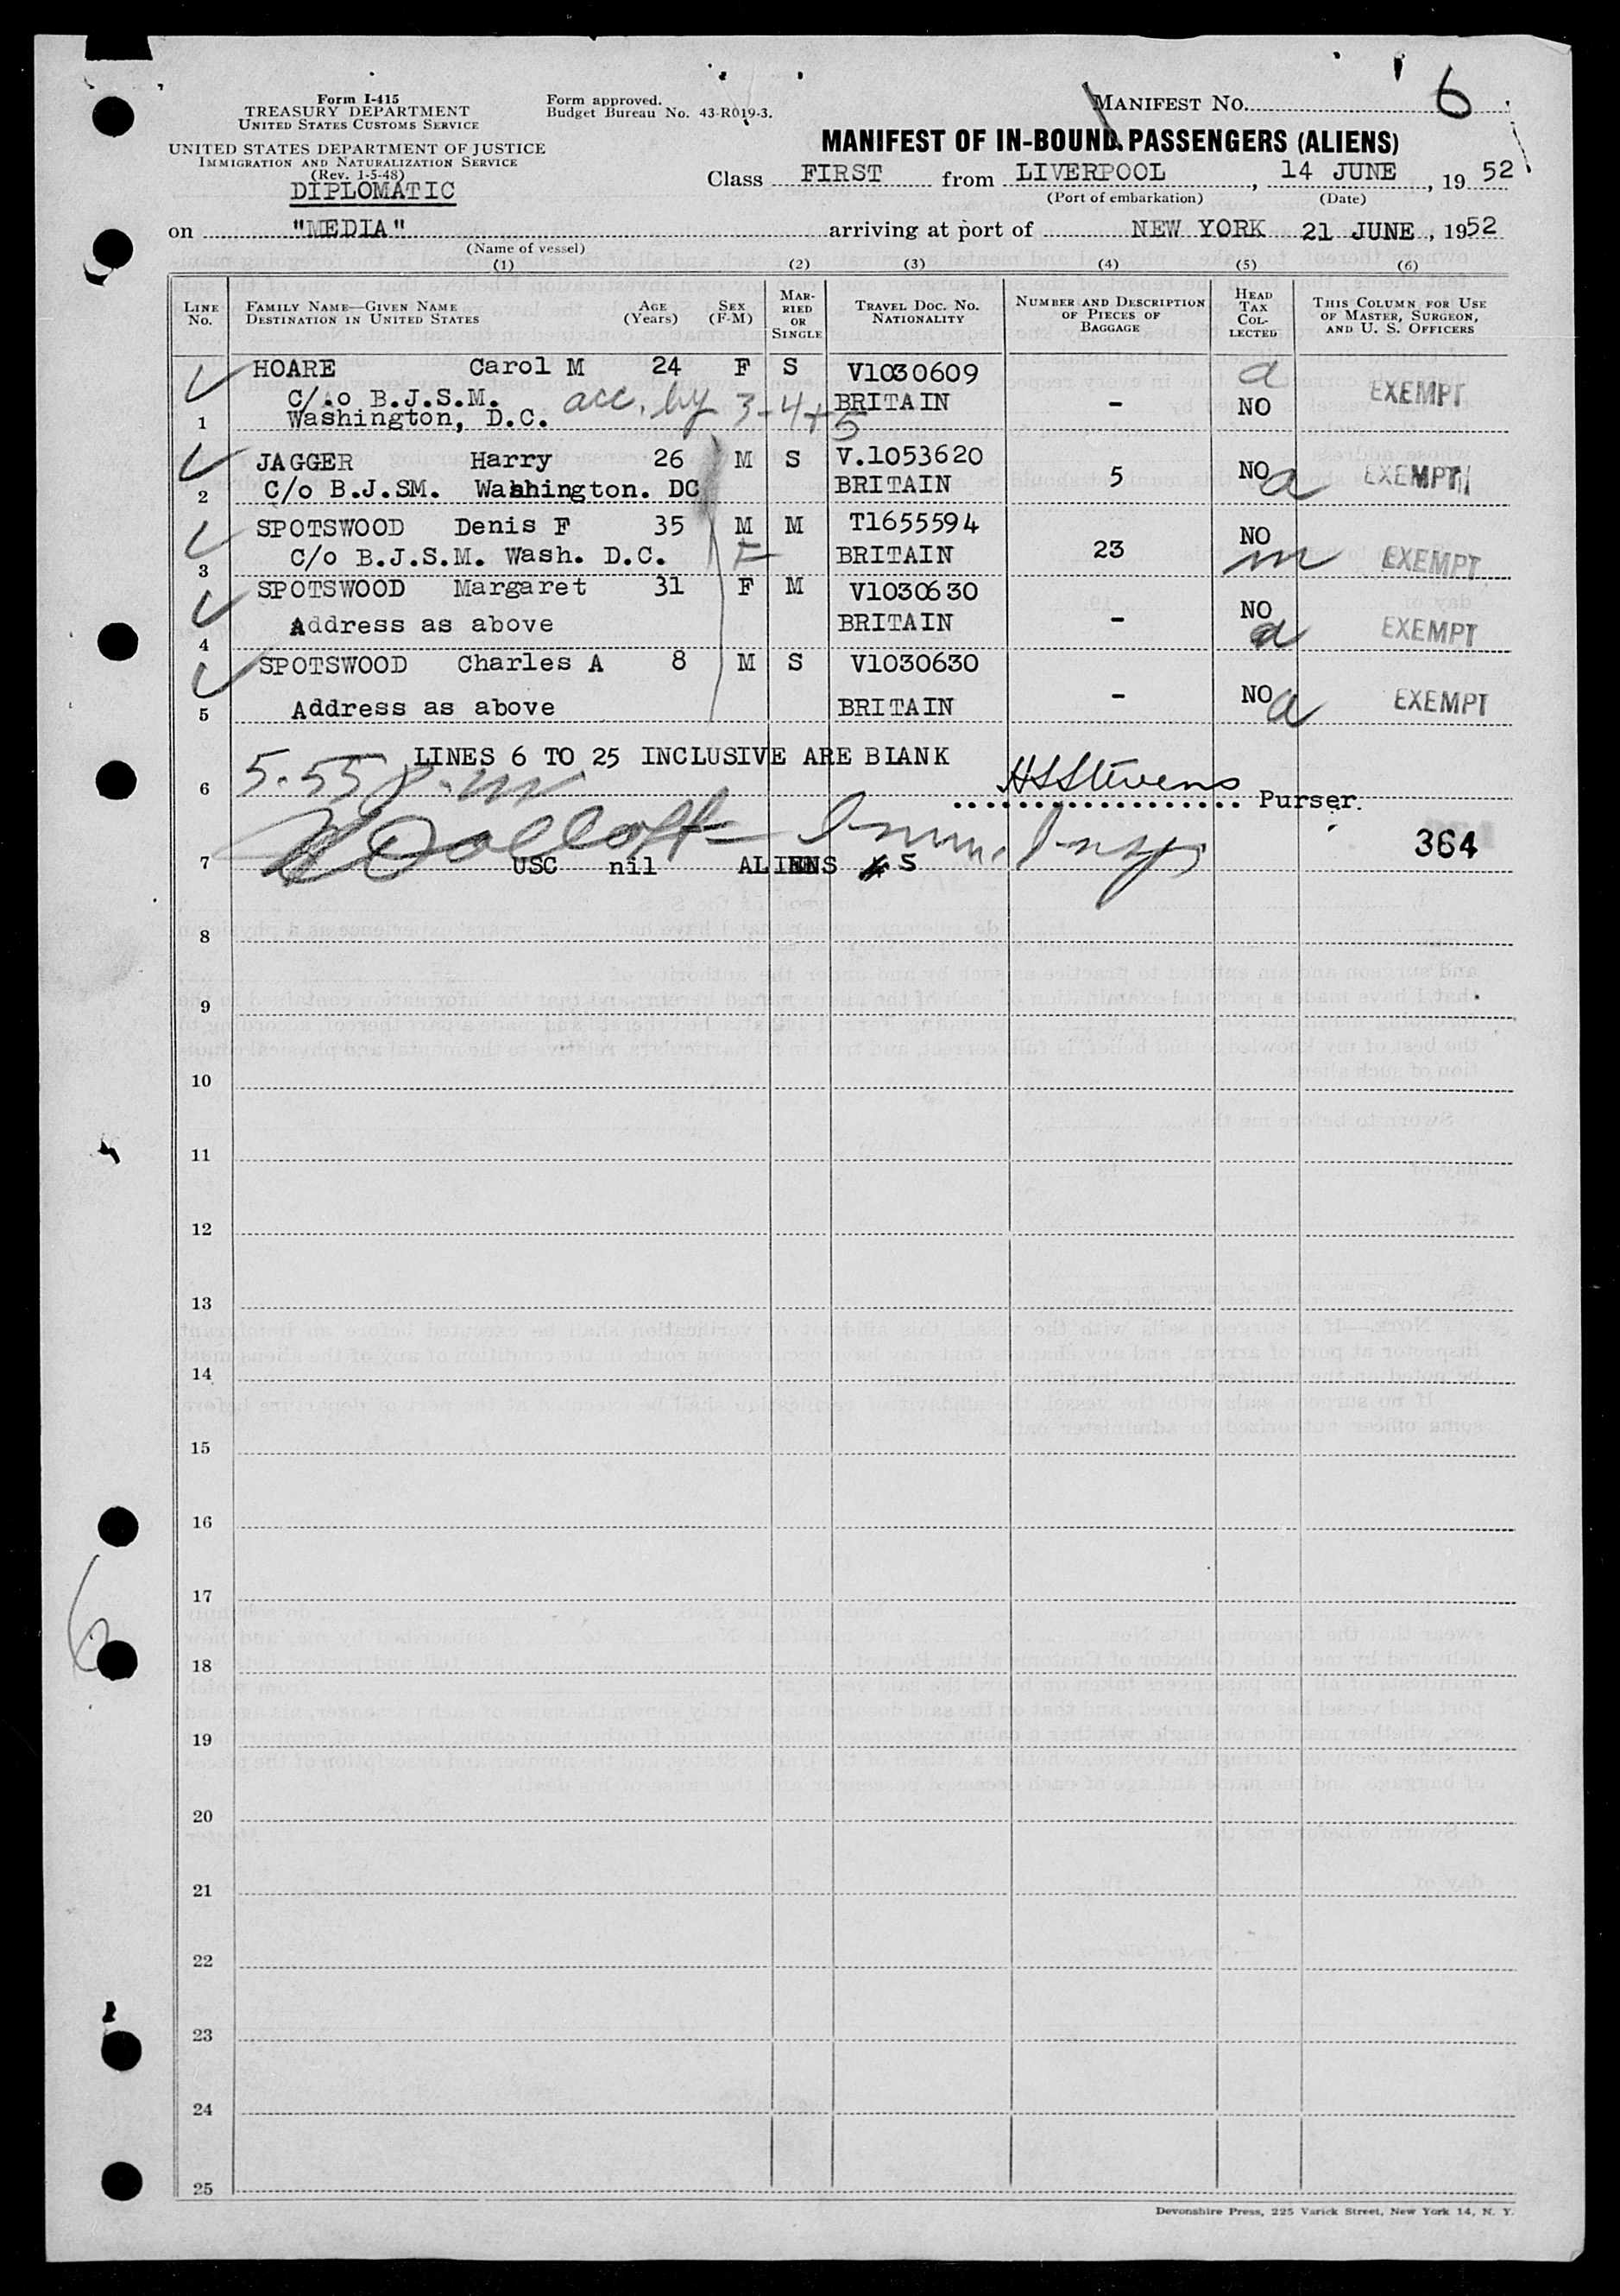 Form I-415
TREASURY DEPARTMENT
UNITED STATES CUSTOMS SERVICE
UNITED STATES DEPARTMENT OF JUSTICE
IMMIGRATION AND NATURALIZATION SERVICE
(Rev. 1-5-48)
DIPLOMATIC
Form approved.
Budget Bureau No. 43-R019-3.
MANIFEST NO. 6
MANIFEST OF IN-BOUND PASSENGERS (ALIENS)
Class FIRST from LIVERPOOL, 14 JUNE, 19 52
(Port of embarkation) (Date)
on "MEDIA" arriving at port of NEW YORK 21 JUNE, 1952
(Name of vessel)
(1) (2) (3) (4) (5) (6)
LINE NO. FAMILY NAME—GIVEN NAME DESTINATION IN UNITED STATES AGE (Years) SEX (F-M) MARRIED OR SINGLE TRAVEL DOC. NO. NATIONALITY NUMBER AND DESCRIPTION OF PIECES OF BAGGAGE HEAD TAX COLLECTED THIS COLUMN FOR USE OF MASTER, SURGEON, AND U. S. OFFICERS
HOARE Carol M 24 F S V1030609 a EXEMPT
C/.o B.J.S.M. acc. by 3-4+5 BRITAIN - NO
1 Washington, D.C.
JAGGER Harry 26 M S V.1053620 5 NO a EXEMPT
2 C/o B.J.SM. Wahhington. DC BRITAIN
SPOTSWOOD Denis F 35 M M T1655594 NO
3 C/o B.J.S.M. Wash. D.C. F BRITAIN 23 m EXEMPT
SPOTSWOOD Margaret 31 F M V1030630 NO
4 Address as above BRITAIN - a EXEMPT
SPOTSWOOD Charles A 8 M S V1030630
5 Address as above BRITAIN - NO a EXEMPT
LINES 6 TO 25 INCLUSIVE ARE BLANK
6 5.55 p.m HSStevens Purser.
Immi. Insp. 364
7 USC nil ALIENS 5
8
9
10
11
12
13
14
15
16
17
6
18
19
20
21
22
23
24
25
Devonshire Press, 225 Varick Street, New York 14, N. Y.